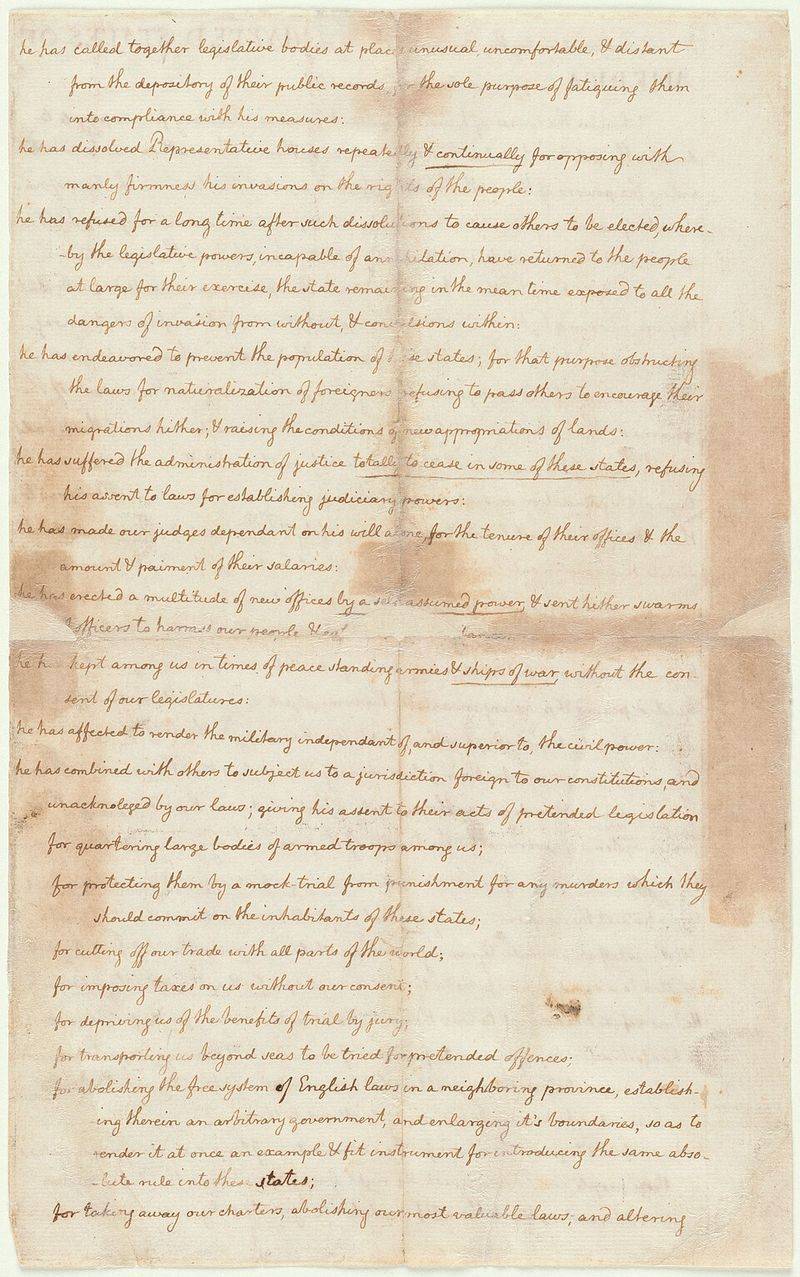 he has called together legislative bodies at places unusual, uncomfortable, & distant
from the depository of their public records, for the sole purpose of fatiguing them
into compliance with his measures:
he has dissolved Representative houses repeatedly & continually for opposing with
manly firmness his invasions on the rights of the people:
he has refused for a long time after such dissolutions to cause others to be elected, where-
-by the legislative powers, incapable of annihilation, have returned to the people
at large for their exercise, the state remaining in the mean time exposed to all the
dangers of invasion from without, & convulsions within:
he has endeavored to prevent the population of these states; for that purpose obstructing
the laws for naturalization of foreigners refusing to pass others to encourage their
migrations hither; & raising the conditions of new appropriations of lands:
he has suffered the administration of justice totally to cease in some of these states, refusing
his assent to laws for establishing judiciary powers:
he has made our judges dependant on his will alone, for the tenure of their offices & the
amount & paiment of their salaries:
he has erected a multitude of new offices by a self assumed power, & sent hither swarms
officers to harrass our people &
he kept among us in times of peace standing armies & ships of war, without the con-
sent of our legislatures:
he has affected to render the military independant of, and superior to, the civil power:
he has combined with others to subject us to a jurisdiction foreign to our constitutions, and
unacknoleged by our laws; giving his assent to their acts of pretended legislation
for quartering large bodies of armed troops among us;
for protecting them by a mock-trial from punishment for any murders which they
should commit on the inhabitants of these states;
for cutting off our trade with all parts of the world;
for imposing taxes on us without our consent;
for depriving us of the benefits of trial by jury;
for transporting us beyond seas to be tried for pretended offences;
for abolishing the free system of English laws in a neighboring province, establish-
ing therein an arbitrary government, and enlarging it's boundaries, so as to
render it at once an example & fit instrument for introducing the same abso-
-lute rule into these states;
for taking away our charters, abolishing our most valuable laws, and altering